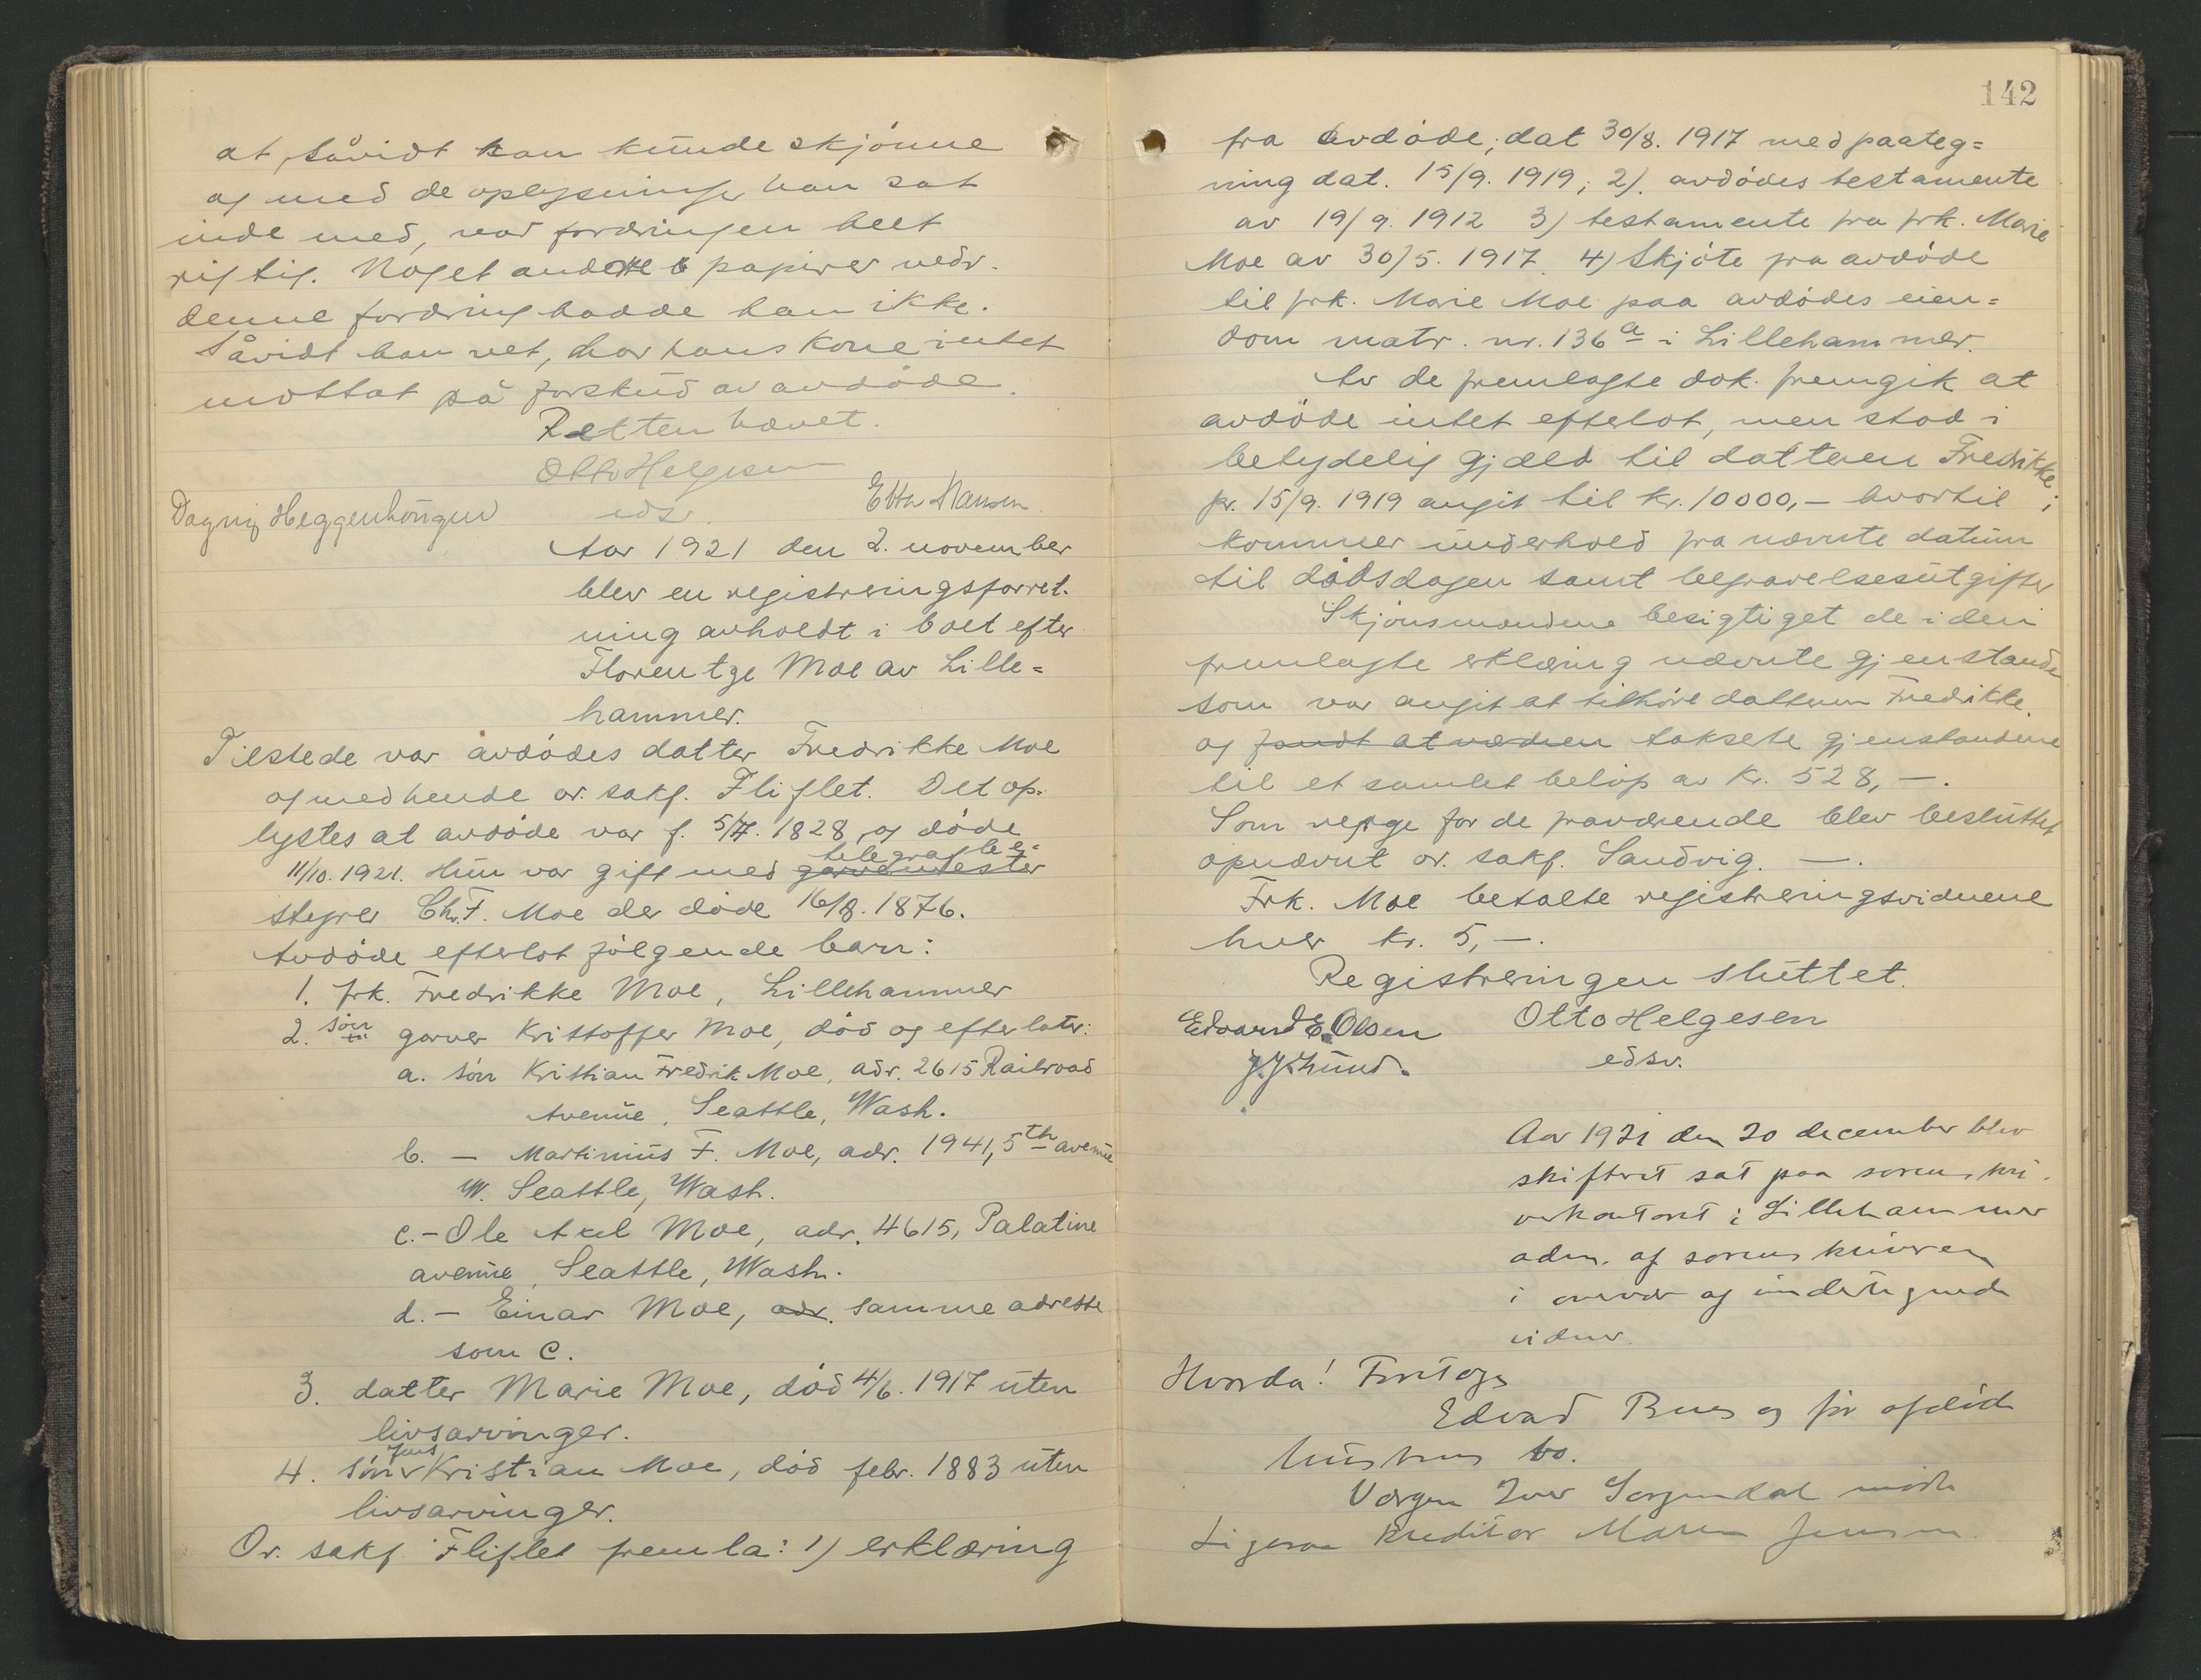 at, såvidt han kunde skjönne
og med de oplysninger han sat
inde med, var fordringen helt
rigtig. Noget andet papirer vedr.
denne fordring hadde han ikke.
Såvidt han vet, har hans kone intet
mottat på forskud av avdöde.
Retten hævet.
Otto Helgesen
edsv. Etta Hansen.
Dagny Heggenhougen
Aar 1921 den 2. november
blev en registreringsforret-
ning avholdt i boet efter
Florentze Moe av Lille=
hammer.
Tilstede var avdödes datter Fredrikke Moe
og med hende or. sakf. Fliflet. Det op-
lystes at avdöde var f. 5/7. 1828 og döde
11/10. 1921. Hun var gift med garvemester telegrafbe-
styrer Chr. F. Moe der döde 16/8. 1876.
Avdöde efterlot fölgende barn:
1. frk. Fredrikke Moe, Lillehammer
2. sön garver Kristoffer Moe, död og efterlater:
a. sön Kristian Fredrik Moe, adr. 2615 Railroad
Avenue, Seattle, Wash.
b. — Martinius F. Moe, adr. 1941, 5th avenue
W. Seattle, Wash.
c. - Ole Axel Moe, adr. 4615, Palatine
avenue, Seattle, Wash.
d. — Einar Moe, adr. samme adresse
som c.
3. datter Marie Moe, död 4/6. 1917 uten
livsarvinger.
4. sön Jens Kristian Moe, död febr. 1883 uten
livsarvinger.
Or. sakf. Fliflet fremla: 1) erklæring
142
fra avdöde, dat 30/8. 1917 med paateg=
ning dat. 15/9. 1919; 2). avdödes testamente
av 19/9. 1912 3) testamente fra frk. Marie
Moe av 30/5. 1917. 4) Skjöte fra avdöde
til frk. Marie Moe paa avdödes eien=
dom matr. nr. 136 a i Lillehammer.
Av de fremlagte dok. fremgik at
avdöde intet efterlot, men stod i
betydelig gjæld til datteren Fredrikke,
pr. 15/9. 1919 angit til kr. 10000,— hvortil
kommer underhold fra nævnte datum
til dödsdagen samt begravelsesutgifter
Skjönsmændene besigtiget de i den
fremlagte erklæring nævnte gjenstande
som var angit at tilhöre datteren Fredrikke.
og fandt at værdien taksete gjenstandene
til et samlet belöp av kr. 528,—.
Som verge for de fraværende blev besluttet
opnævnt or. sakf. Sandvig. —.
Frk. Moe betalte registreringsvidnene
hver kr. 5,—.
Registreringen sluttet.
Edvard E. Olsen Otto Helgesen
J. J. Lund. edsv.
Aar 1921 den 20 december blev
skifteret sat paa sorenskri-
verkontoret i Lillehammer
adm. af sorenskriveren
i overvær af undertegnede
vidner.
Hvorda! Foretoges
Edvard og for afdöde
hustrus bo.
Værgen Iver mödte
Ligesaa kreditor Maren Jensen